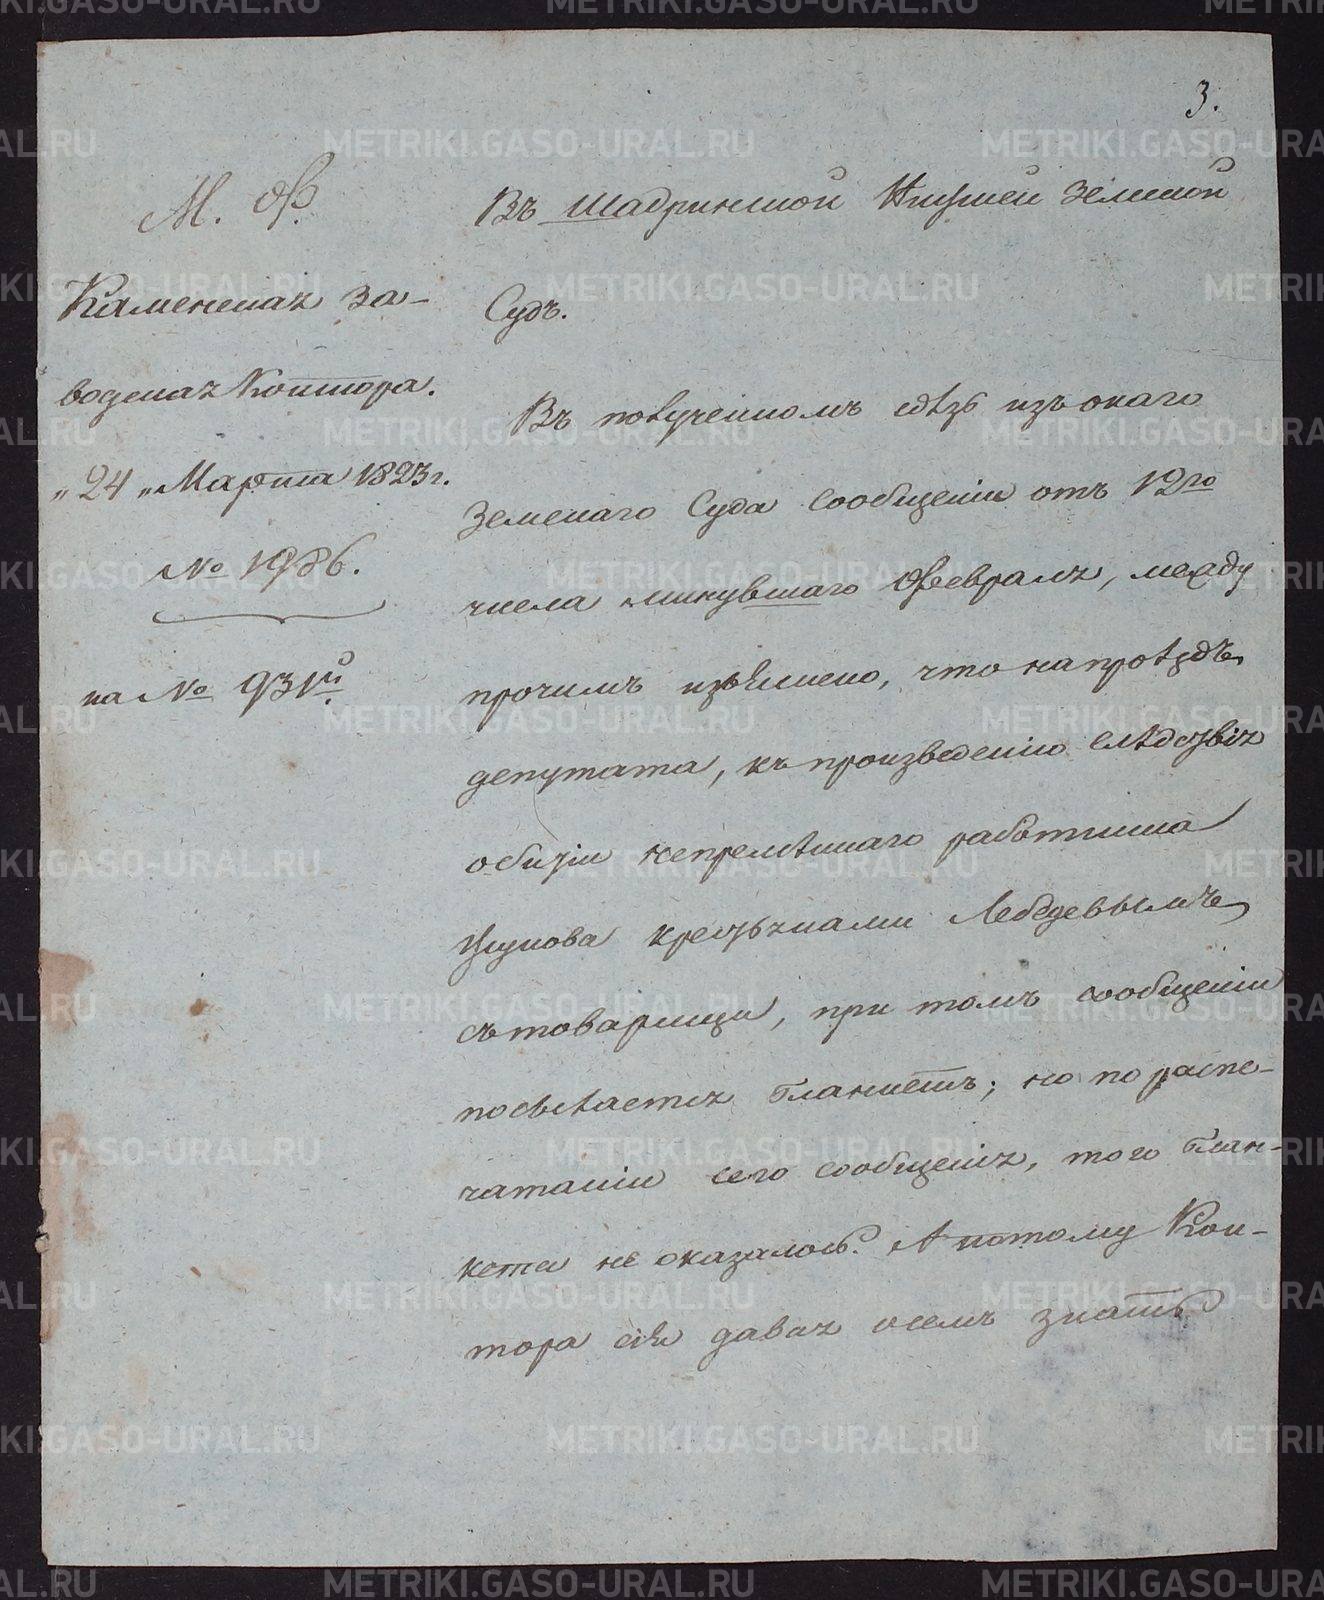 3.
М. Ф.
Каменская за-
водская Контора.
„24„ Марта 1823 г.
№ 1986.
на № 931й.
Въ Шадринской Нижней Земской
Судъ.
Въ полученномъ здѣсь изъ онаго
Земскаго Суда сообщеніи отъ 12го
числа минувшаго Февраля, между
прочимъ изъяснено, что на проѣздъ
депутата, къ произведенію слѣдствія
обиженія непремѣннаго работника
крестьянами Лебедевымъ
съ товарищи, при томъ сообщеніи
посылается бланкетъ; но по распе-
чатаніи сего сообщенія, того блан-
кета не оказалось. А потому Кон-
тора сія давая осемъ знать